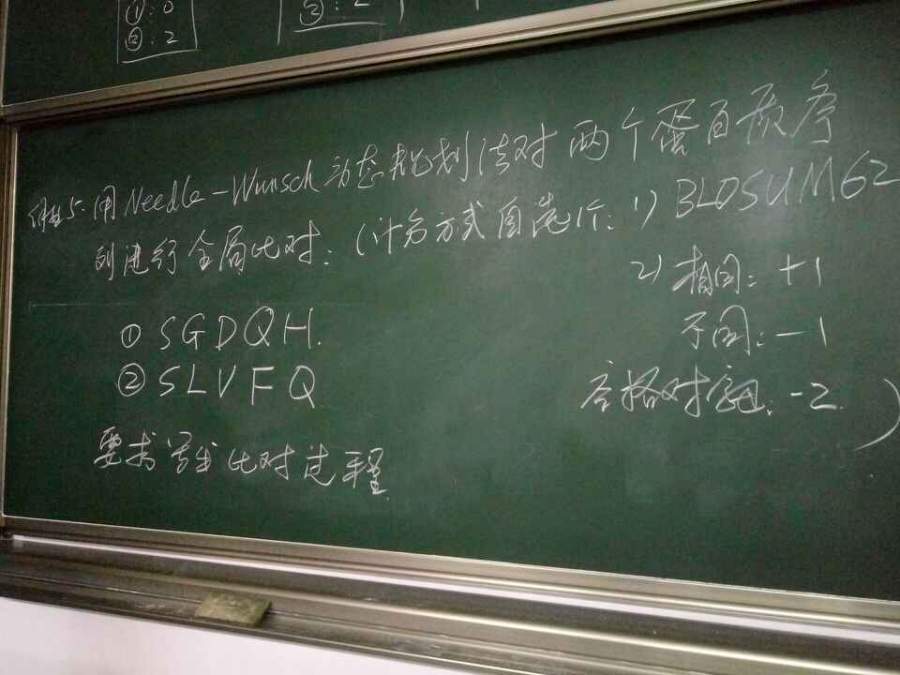 ①: 0
②: 2
③: 2
5. 用Needle-Wunsch动态规划法对两个蛋白质序
列进行全局比对：(计分方式自选：1) BLOSUM62
2) 相同：+1
不同：-1
空格对：-2 )
① SGDQH.
② SLVFQ
要求写出比对过程